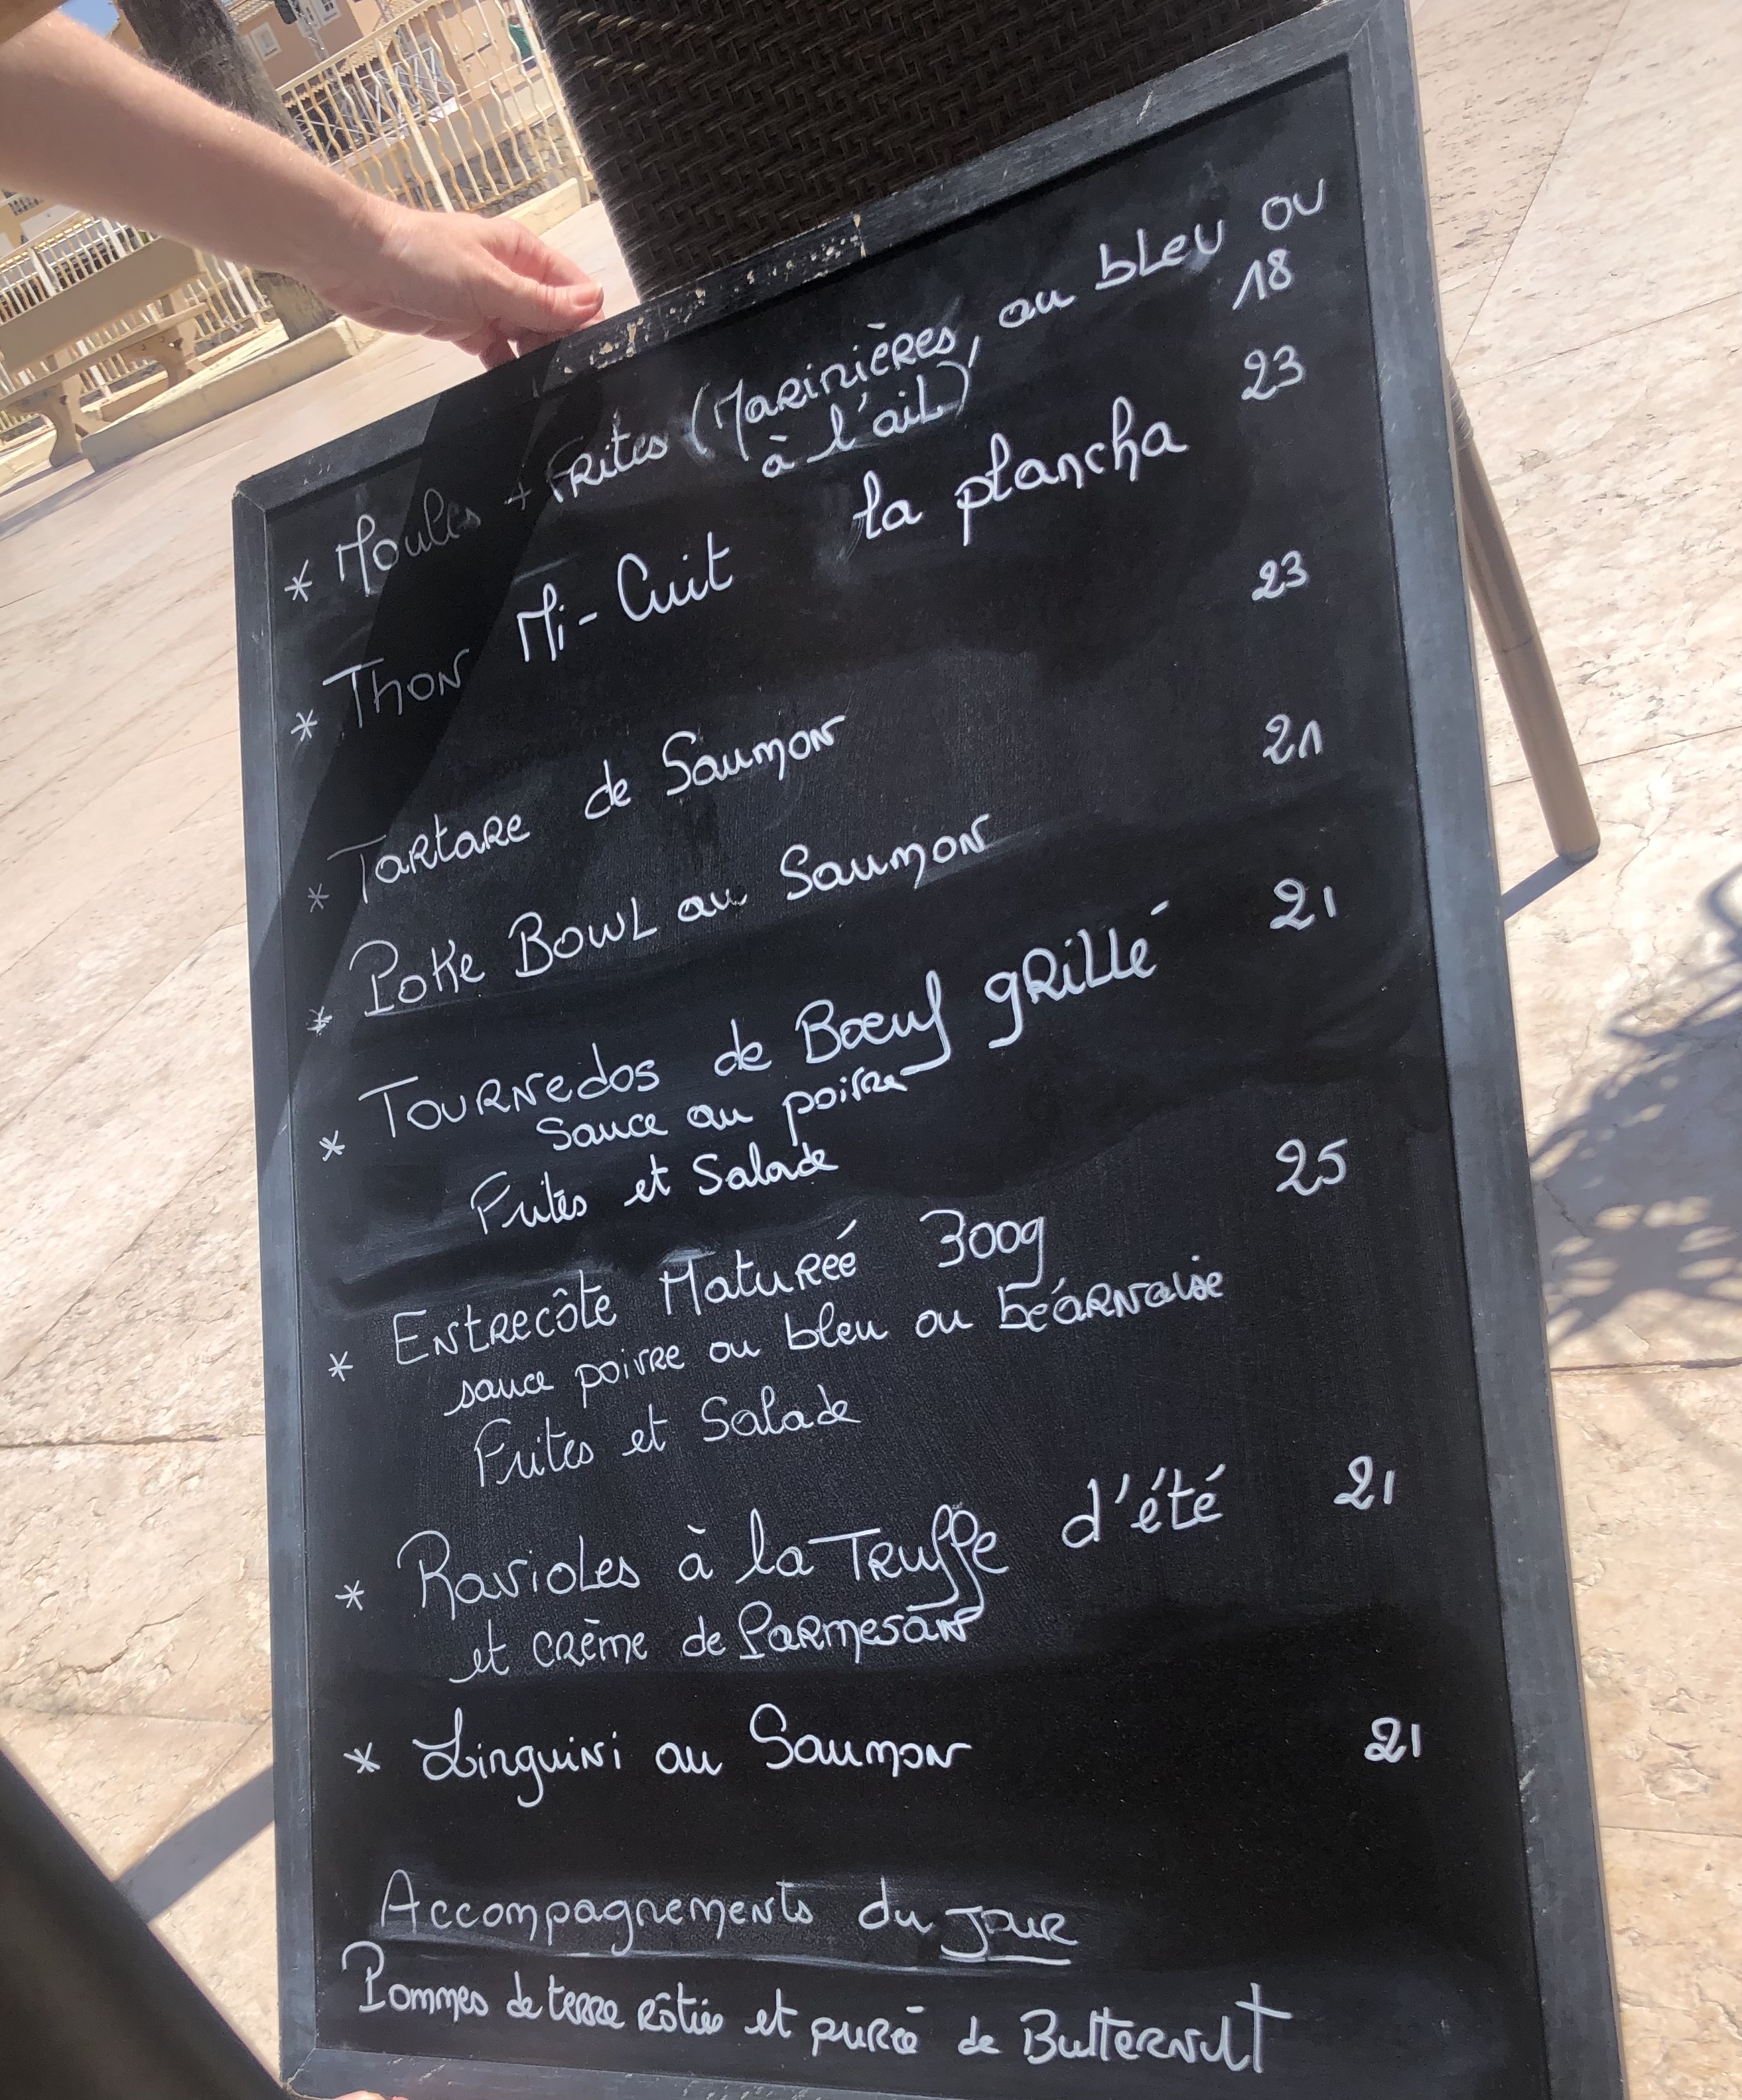 * Moules + Frites (Marinières, au bleu ou
à l'ail) 18
* Thon Mi-Cuit la plancha 23
* Tartare de Saumon 23
* Poke Bowl au Saumon 21
* Tournedos de Bœuf grillé 21
Sauce au poivre
Frites et Salade
* Entrecôte Maturéé 300g 25
sauce poivre ou bleu ou béarnaise
Frites et Salade
* Ravioles à la Truffe d'été 21
et crème de Parmesan
* Linguini au Saumon 21
Accompagnements du jour
Pommes de terre rôties et purée de Butternut